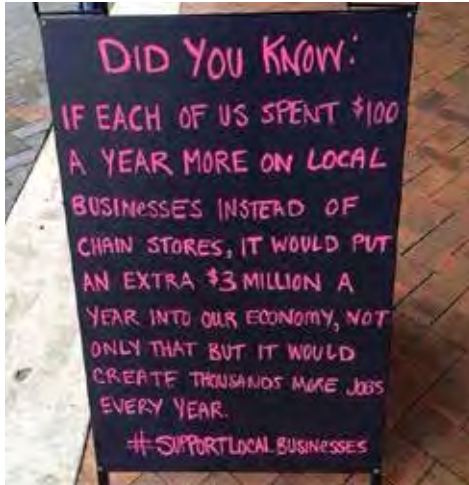 DID YOU KNOW:
IF EACH OF US SPENT $100
A YEAR MORE ON LOCAL
BUSINESSES INSTEAD OF
CHAIN STORES, IT WOULD PUT
AN EXTRA $3 MILLION A
YEAR INTO OUR ECONOMY, NOT
ONLY THAT BUT IT WOULD
CREATE THOUSANDS MORE JOBS
EVERY YEAR.
#SUPPORTLOCAL BUSINESSES